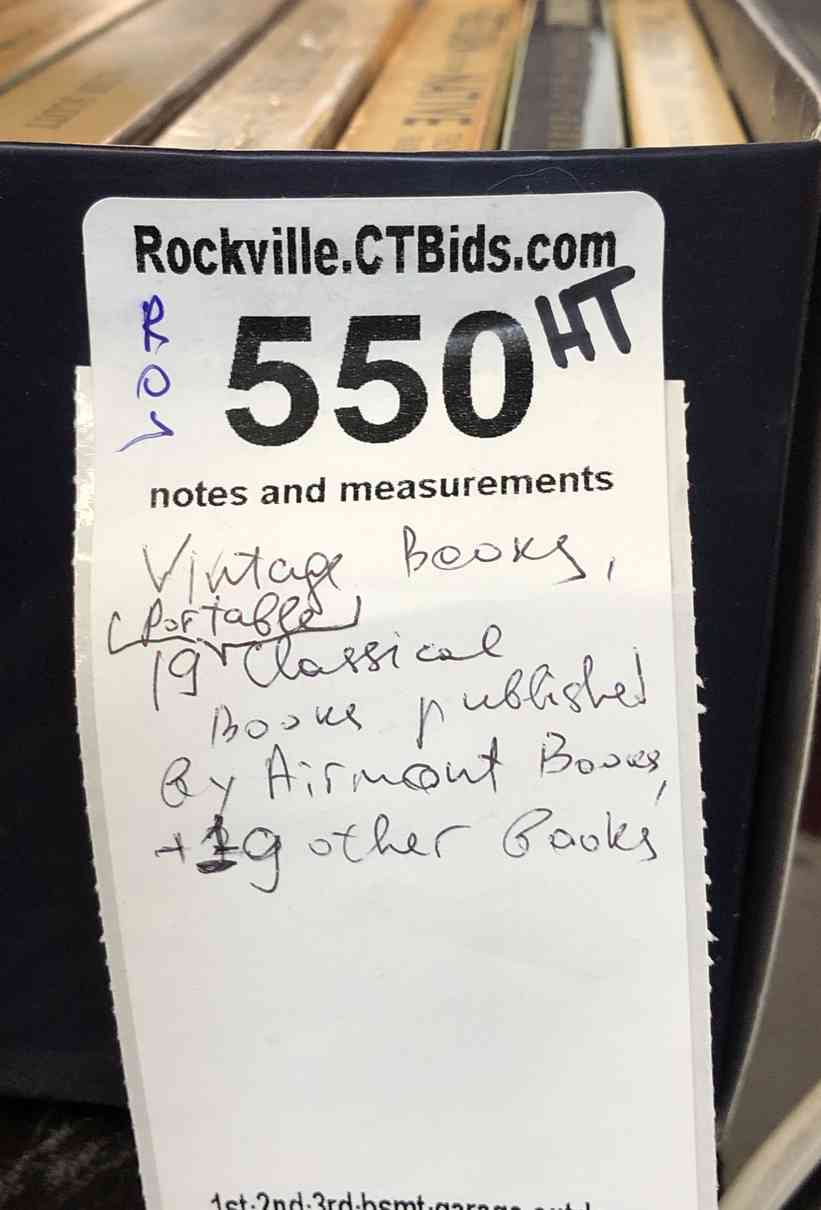 NATIVE
Rockville.CTBids.com
550 HT
notes and measurements
Vintage Books,
(Portable)
19 Classical
Books published
By Airmont Books,
+19 other Books
1st-2nd-3rd-bsmt-garage-